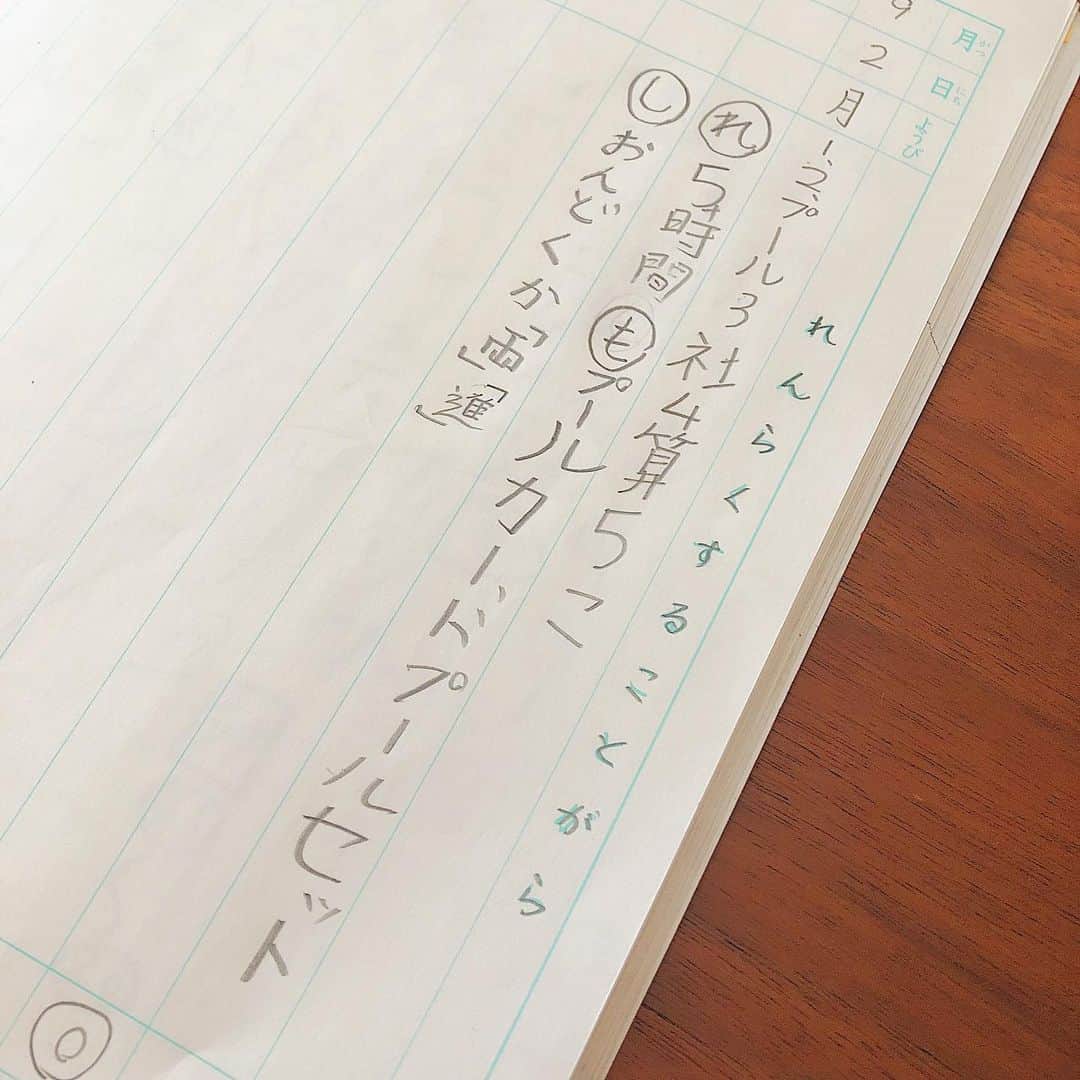 月 がつ
日 にち
ようび
れんらくすることがら
9
2
月
1、2、プール3社4算5こ
れ 5時間 も プールカードプールセット
し おんどくか「」「進」